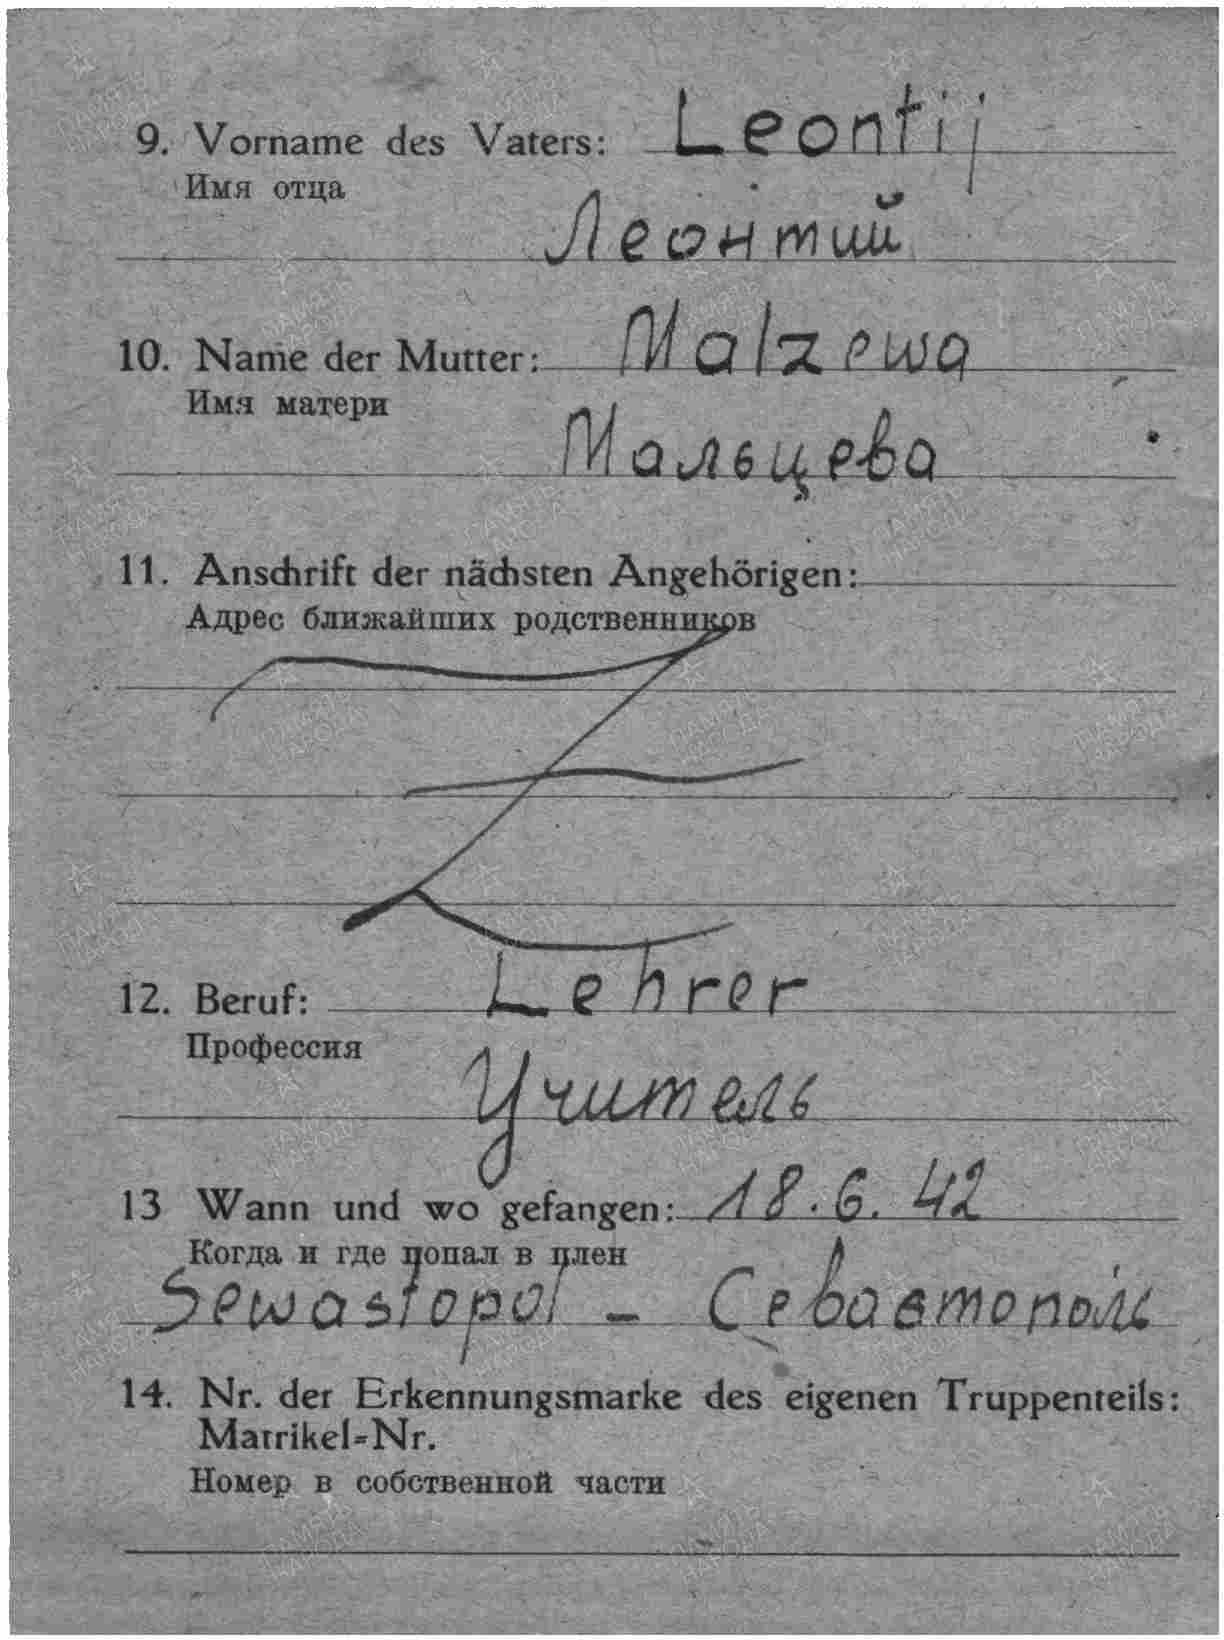 9. Vorname des Vaters: Leontij
Имя отца
Леонтий
10. Name der Mutter: Malzewa
Имя матери
Мальцева
11. Anschrift der nächsten Angehörigen:
Адрес ближайших родственников
12. Beruf: Lehrer
Профессия
Учитель
13 Wann und wo gefangen: 18.6.42
Когда и где попал в плен
Sewastopol - Севастополь
14. Nr. der Erkennungsmarke des eigenen Truppenteils:
Matrikel=Nr.
Номер в собственной части
ПАМЯТЬ НАРОДА